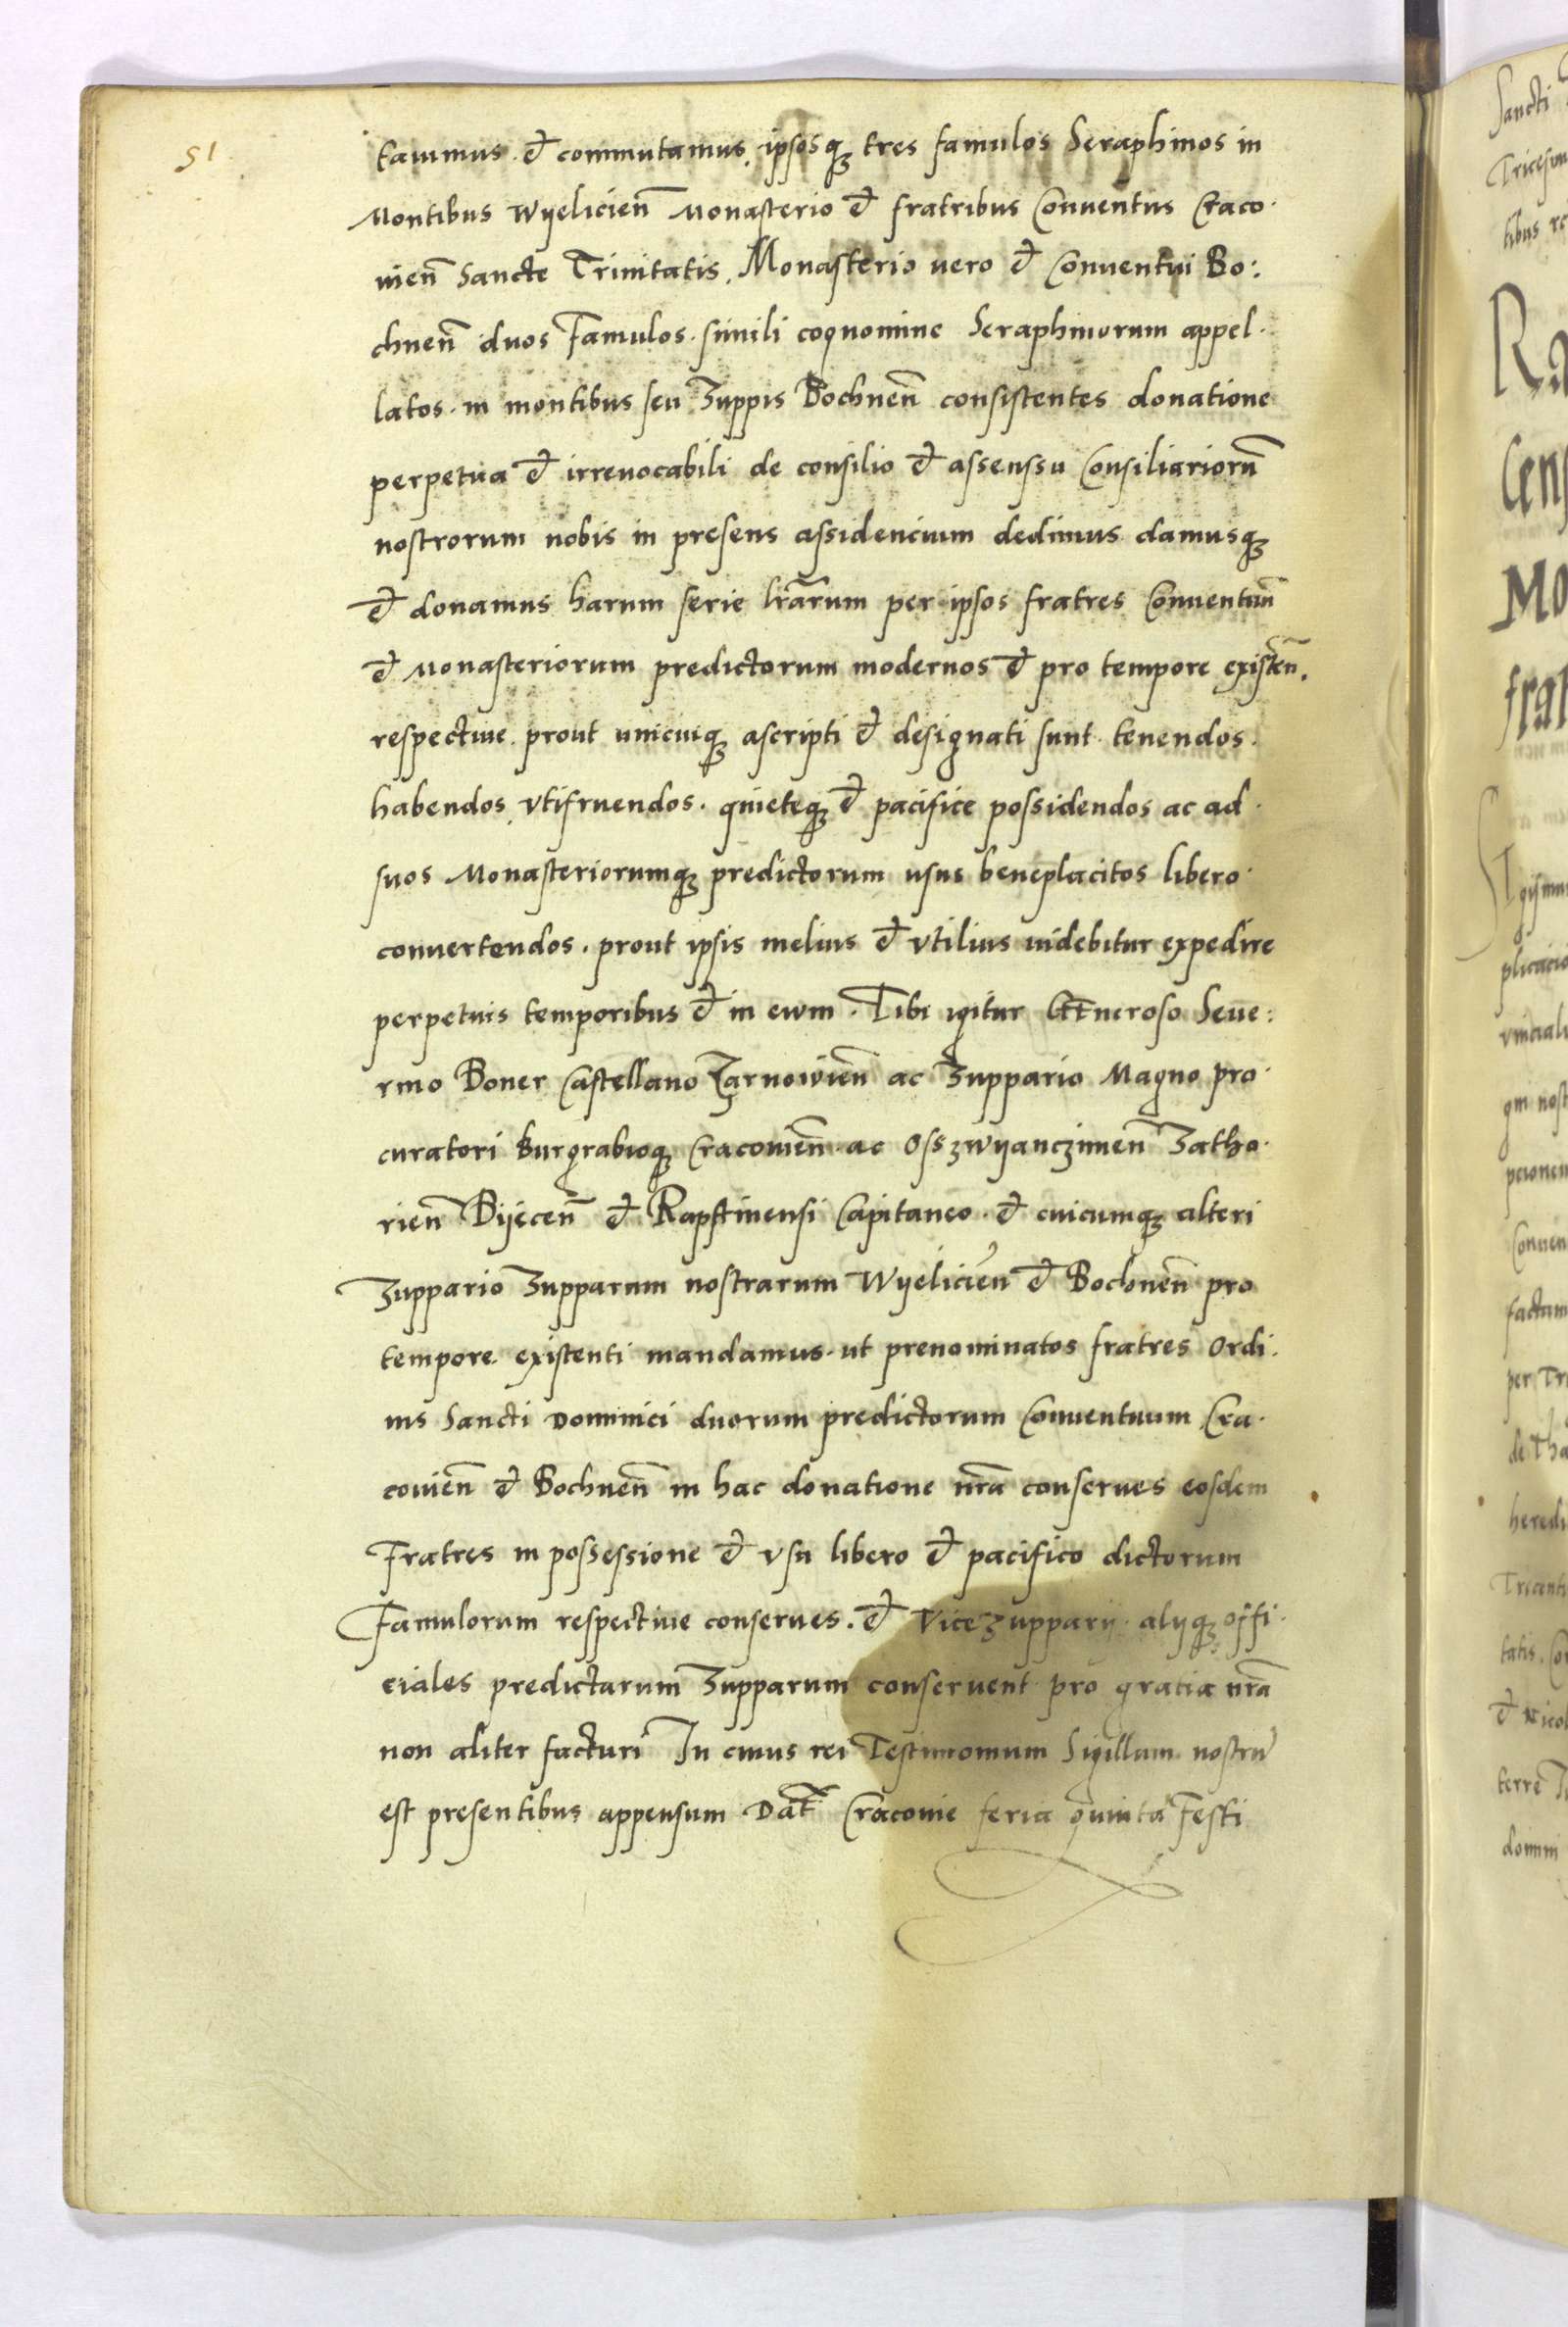 51
tauimus. et commutamus, ipsosqȝ tres famulos Seraphinos in
Montibus Wyelicien̄ Monasterio et fratribus Conuentus Craco·
uien̄ Sancte Trinitatis. Monasterio uero et Conuentui Bo:
chnen̄ duos Famulos. simili cognomine Seraphinorum appel·
latos. in montibus seu Zuppis Bochnen̄ consistentes donatione
perpetua et irreuocabili de consilio et assenssu Consiliariorū
nostrorum nobis in presens assidencium dedimus damusqȝ
et donamus harum serie lr̄arum per ipsos fratres Conuentuū
et Monasteriorum predictorum modernos et pro tempore existen̄.
respectiue. prout unicuiqȝ ascripti et designati sunt. tenendos.
habendos, vtifruendos. quieteqȝ et pacifice possidendos ac ad·
suos Monasteriorumqȝ predictorum usus beneplacitos libero·
conuertendos. prout ipsis melius et vtilius uidebitur expedire
perpetuis temporibus et in ewm. Tibi igitur GEneroso Seue:
rino Boner Castellano Zarnowien̄ ac Zuppario Magno pro·
curatori burgrabioqȝ Cracouien̄. ac Osszwyanczimen̄ Zatho·
rien̄ Byecen̄ et Rapstinensi Capitaneo. et cuicumqȝ alteri
Zuppario Zupparum nostrarum Wyelicien̄ et Bochnen̄ pro
tempore existenti mandamus. ut prenominatos fratres Ordi·
nis Sancti Dominici duorum predictorum Conuentuum Cra·
couien̄ et Bochnen̄ in hac donatione nr̄a conserues eosdem
Fratres in possessione et vsu libero et pacifico dictorum
Famulorum respectiue conserues. et Vicezupparij. alijqȝ offi·
ciales predictarum Zupparum conseruent pro gratia nr̄a
non aliter facturi In cuius rei Testimonium Sigillum nostrū
est presentibus appensum Dat̄ Cracouie feria quinta Festi
Sancti
Tricesim
tibus
Cens
Mo
frat
plicacio
uincial
nost
Conuen
factum
per Tr
de Tha
heredi
tatis. Con
et Nicol
terre
domini